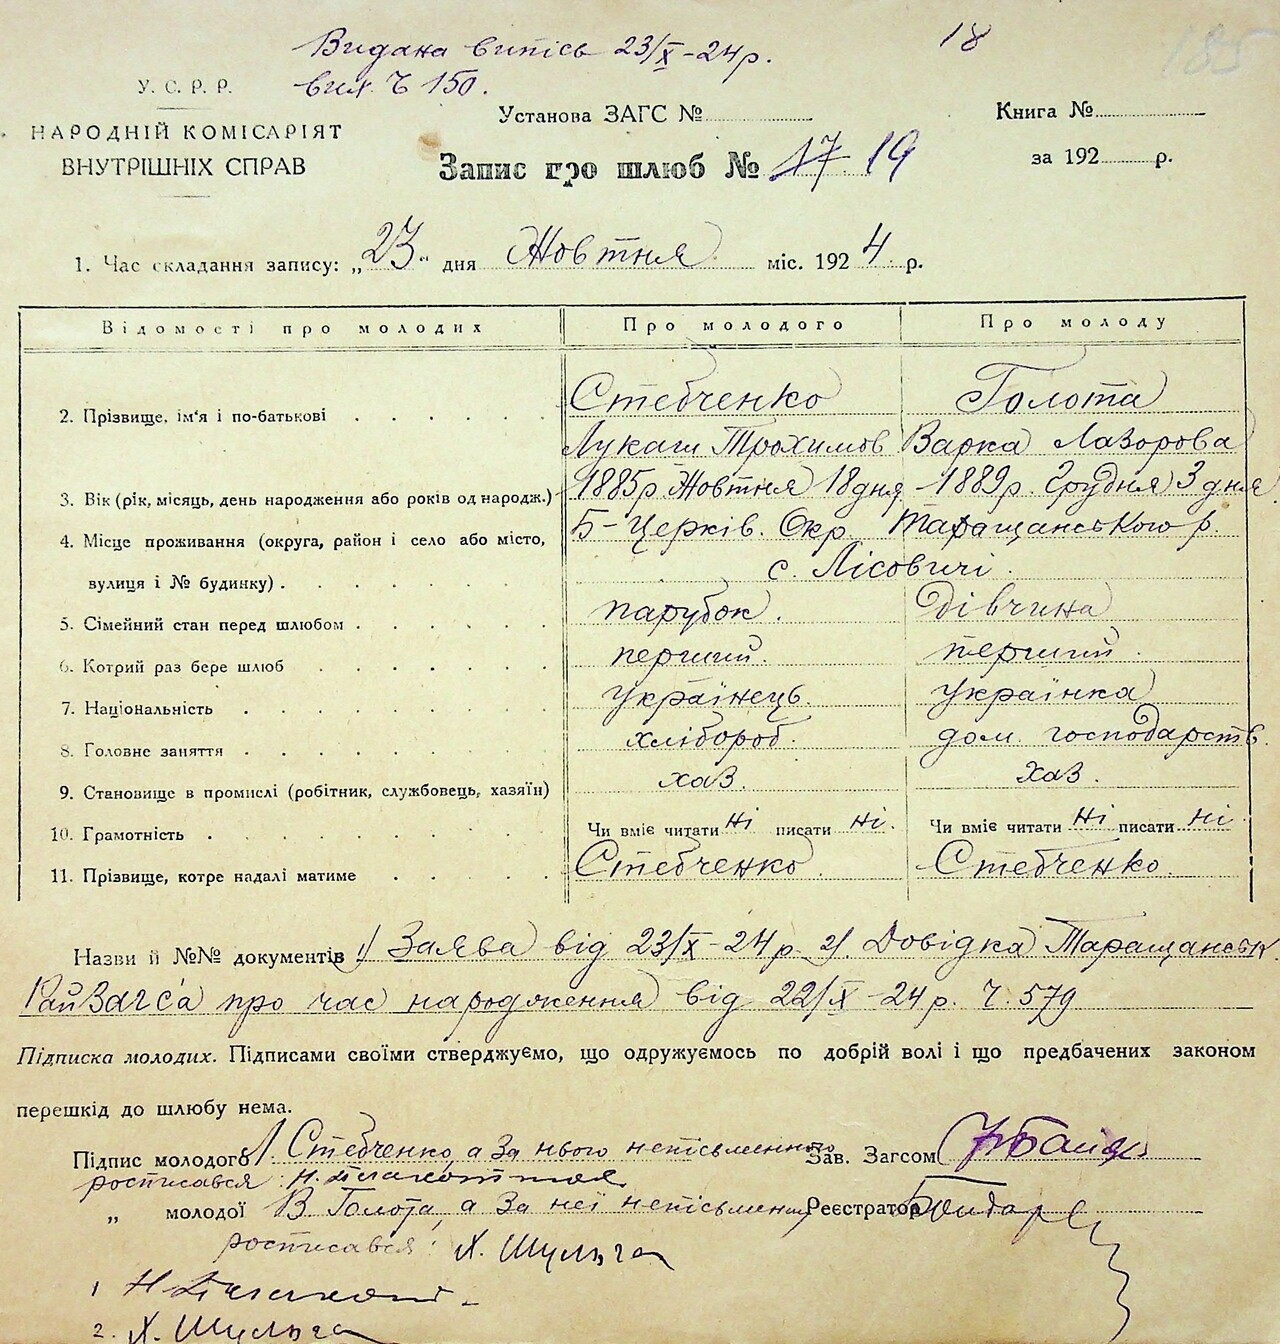 Видана випісь 23/X-24р. 18 185
вих. Ч 150.
У. С. Р. Р.
НАРОДНІЙ КОМІСАРІЯТ
ВНУТРІШНІХ СПРАВ
Установа ЗАГС №
Книга №
Запис про шлюб № 17. 19
за 192 р.
1. Час складання запису: „23" дня Жовтня міс. 1924 р.
Відомості про молодих Про молодого Про молоду
2. Прізвище, ім'я і по-батькові Стебченко Голота
Лукаш Трохимов Варка Лазорова
3. Вік (рік, місяць, день народження або років од народж.) 1885р Жовтня 18 дня 1889р. Грудня 3 дня
4. Місце проживання (округа, район і село або місто, Б-Церків. Окр. Таращанського р.
вулиця і № будинку) с. Лісовичі.
5. Сімейний стан перед шлюбом парубок. Дівчина
6. Котрий раз бере шлюб перший. перший.
7. Національність українець. українка
8. Головне заняття хлібороб. дом. господарств.
9. Становище в промислі (робітник, службовець, хазяїн) хаз. хаз.
10. Грамотність Чи вміє читати ні писати ні. Чи вміє читати ні писати ні.
11. Прізвище, котре надалі матиме Стебченко. Стебченко.
Назви й №№ документів 1) Заява від 23/X-24р 2). Довідка Таращанськ.
РайЗагс'а про час народження від 22/X-24р. Ч. 579
Підписка молодих. Підписами своїми стверджуємо, що одружуємось по добрій волі і що предбачених законом
перешкід до шлюбу нема.
Підпис молодого Л. Стебченко, а за нього непісьменного Зав. Загсом
росписався: Н.
„ молодої В Голота, а за неї непісьменну Реєстратор Бондар
росписався: Х. Шульга
1 Н
2. Х. Шульга